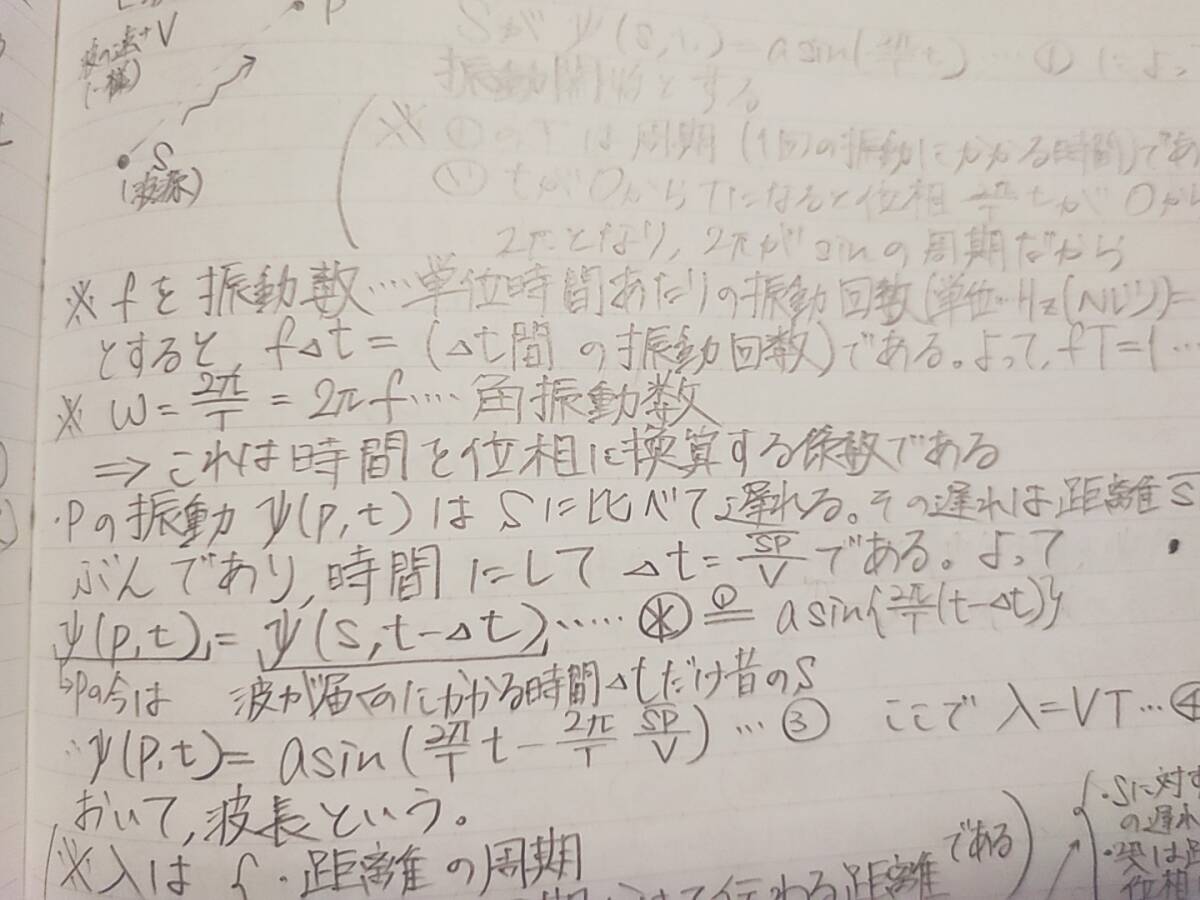 P
波の速さV
(一様)
S
(波源)
Sが ψ(S,t)=asin(2π/T t) … ① によっ
振動開始とする
(※ ①のTは周期(1回の振動にかかる時間)であ
(∵) tが0からTになると位相 2π/T tが0から
2πとなり, 2πがsinの周期だから
※ fを振動数…単位時間あたりの振動回数(単位…Hz(ヘルツ)=
とすると, fΔt=(Δt間の振動回数)である。よって, fT=1 …
※ ω=2π/T=2πf…. 角振動数
⇒これは時間を位相に換算する係数である
・Pの振動 ψ(P,t)はSに比べて遅れる。その遅れは距離S
ぶんであり, 時間にして Δt=SP/Vである。よって
ψ(P,t)=ψ(S,t-Δt)…… ※ ①= asin{2π/T(t-Δt)}
↳Pの今は 波が届くのにかかる時間Δtだけ昔のS
∴ψ(P,t)=asin(2π/T t - 2π/T SP/V) … ③ ここで λ=VT … ④
おいて, 波長という。
(※λは { ・距離の周期 である)
て伝わる距離
{・Sに対す
の遅れ
位相